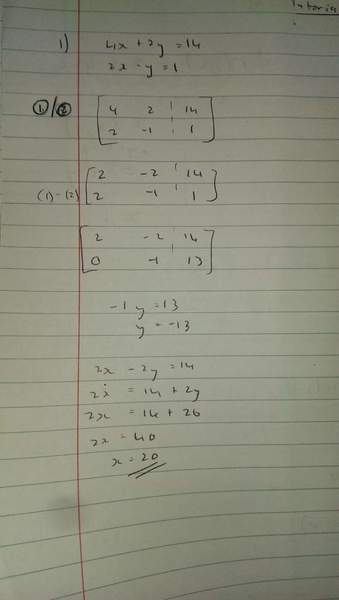 Tutoria
1) 4x + 2y = 14
2x - y = 1
①/② [ 4 2 | 14
2 -1 | 1 ]
[ 2 -2 | 14
(1)-(2) 2 -1 | 1 ]
[ 2 -2 | 14
0 -1 | 13 ]
-1y = 13
y = -13
2x - 2y = 14
2x = 14 + 2y
2x = 14 + 26
2x = 40
x = 20